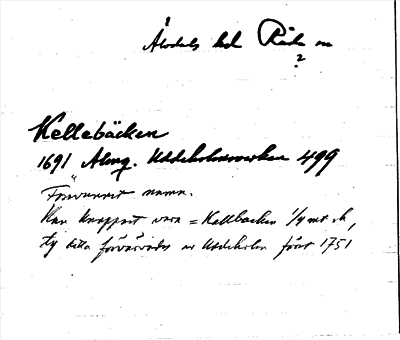 Älvdals hd Råda sn
?
Kellebäcken
1691 Almq. Uddeholmsverken 499
Försvunnet namn.
Kan knappast vara = Kellbacken
ty detta förvärvades av Uddeholm först 1751